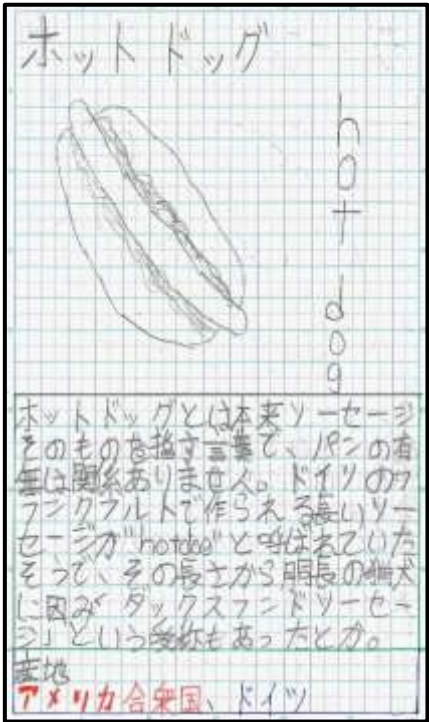 ホット ドッグ
hot dog
ホットドッグとは本来ソーセージ
そのものを指す言葉で、パンの有
無は関係ありません。ドイツのフ
ランクフルトで作られる長いソー
セージが"hotdog"と呼ばれていた
そうで、その長さから胴長の猟犬
に因み「ダックスフンドソーセー
ジ」という愛称もあったとか。
産地
アメリカ合衆国、ドイツ